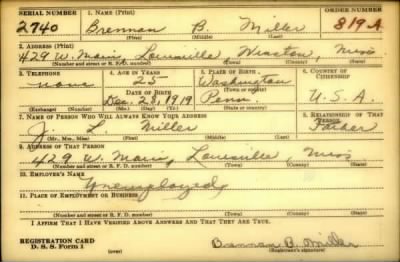 SERIAL NUMBER 1. NAME (Print) ORDER NUMBER
2740 Brennan B. Miller 819-A
(First) (Middle) (Last)
2. ADDRESS (Print)
429 W. Main, Louisville Winston, Miss
(Number and street or R. F. D. number) (Town) (County) (State)
3. TELEPHONE 4. AGE IN YEARS 5. PLACE OF BIRTH 6. COUNTRY OF CITIZENSHIP
none 25 Washington
DATE OF BIRTH (Town or county)
Dec. 28, 1919 Penn. U. S. A.
(Exchange) (Number) (Mo.) (Day) (Yr.) (State or country)
7. NAME OF PERSON WHO WILL ALWAYS KNOW YOUR ADDRESS 8. RELATIONSHIP OF THAT PERSON
J. L. Miller Father
(Mr., Mrs., Miss) (First) (Middle) (Last)
9. ADDRESS OF THAT PERSON
429 W. Main, Louisville, Miss
(Number and street or R. F. D. number) (Town) (County) (State)
10. EMPLOYER'S NAME
Unemployed
11. PLACE OF EMPLOYMENT OR BUSINESS
(Number and street or R. F. D. number) (Town) (County) (State)
I AFFIRM THAT I HAVE VERIFIED ABOVE ANSWERS AND THAT THEY ARE TRUE.
REGISTRATION CARD
D. S. S. Form 1 (over) Brennan B. Miller
(Registrant's signature)